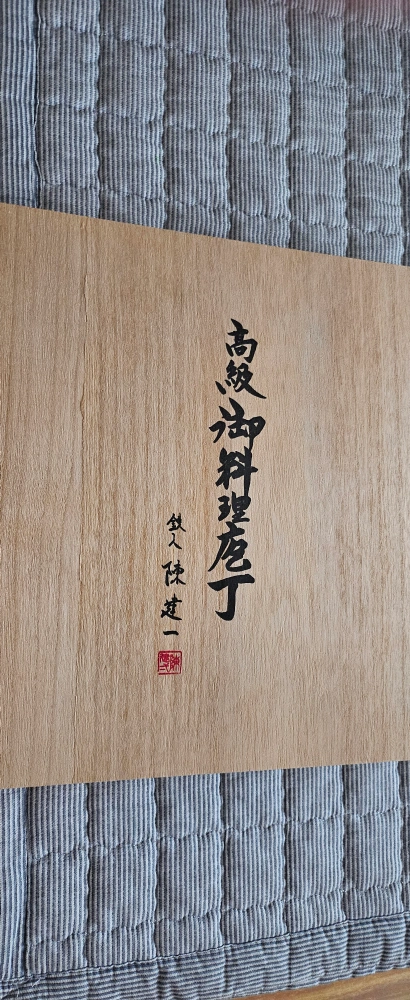 高級御料理庖丁
鉄人 陳建一